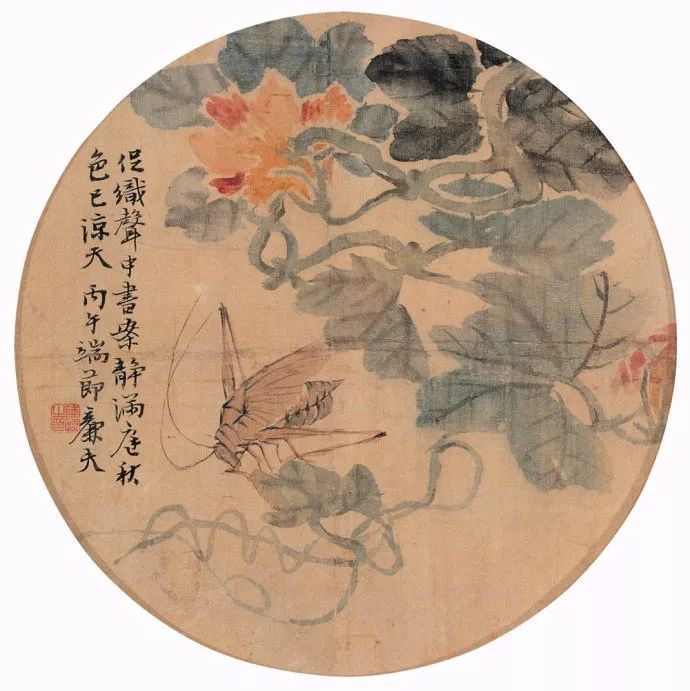 促織聲中書案靜滿庭秋
色已涼天 丙午端節廉夫